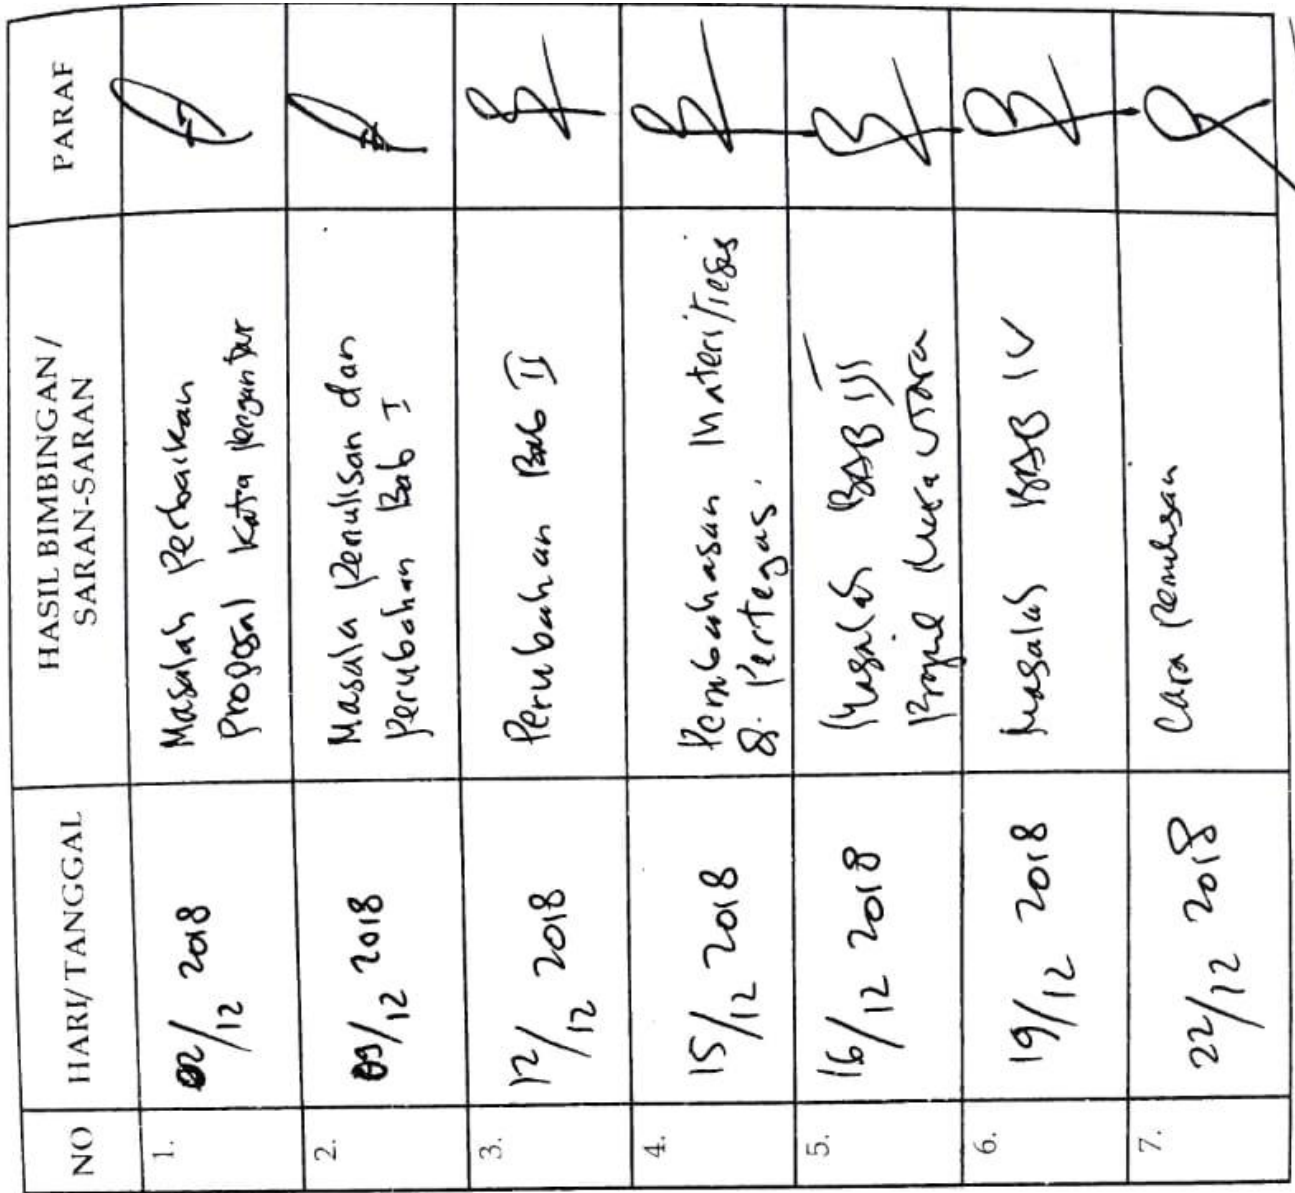 NO HARI/TANGGAL HASIL BIMBINGAN/ SARAN-SARAN PARAF
1. 02/12 2018 Masalah Perbaikan
proposal kata pengantar
2. 09/12 2018 Masala Penulisan dan
perubahan Bab I
3. 12/12 2018 Perubahan Bab II
4. 15/12 2018 Pembahasan Materi/Tesis
&. Pertegas.
5. 16/12 2018 Masalah BAB III
Utara
6. 19/12 2018 Masalah BAB IV
7. 22/12 2018 Cara Penulisan